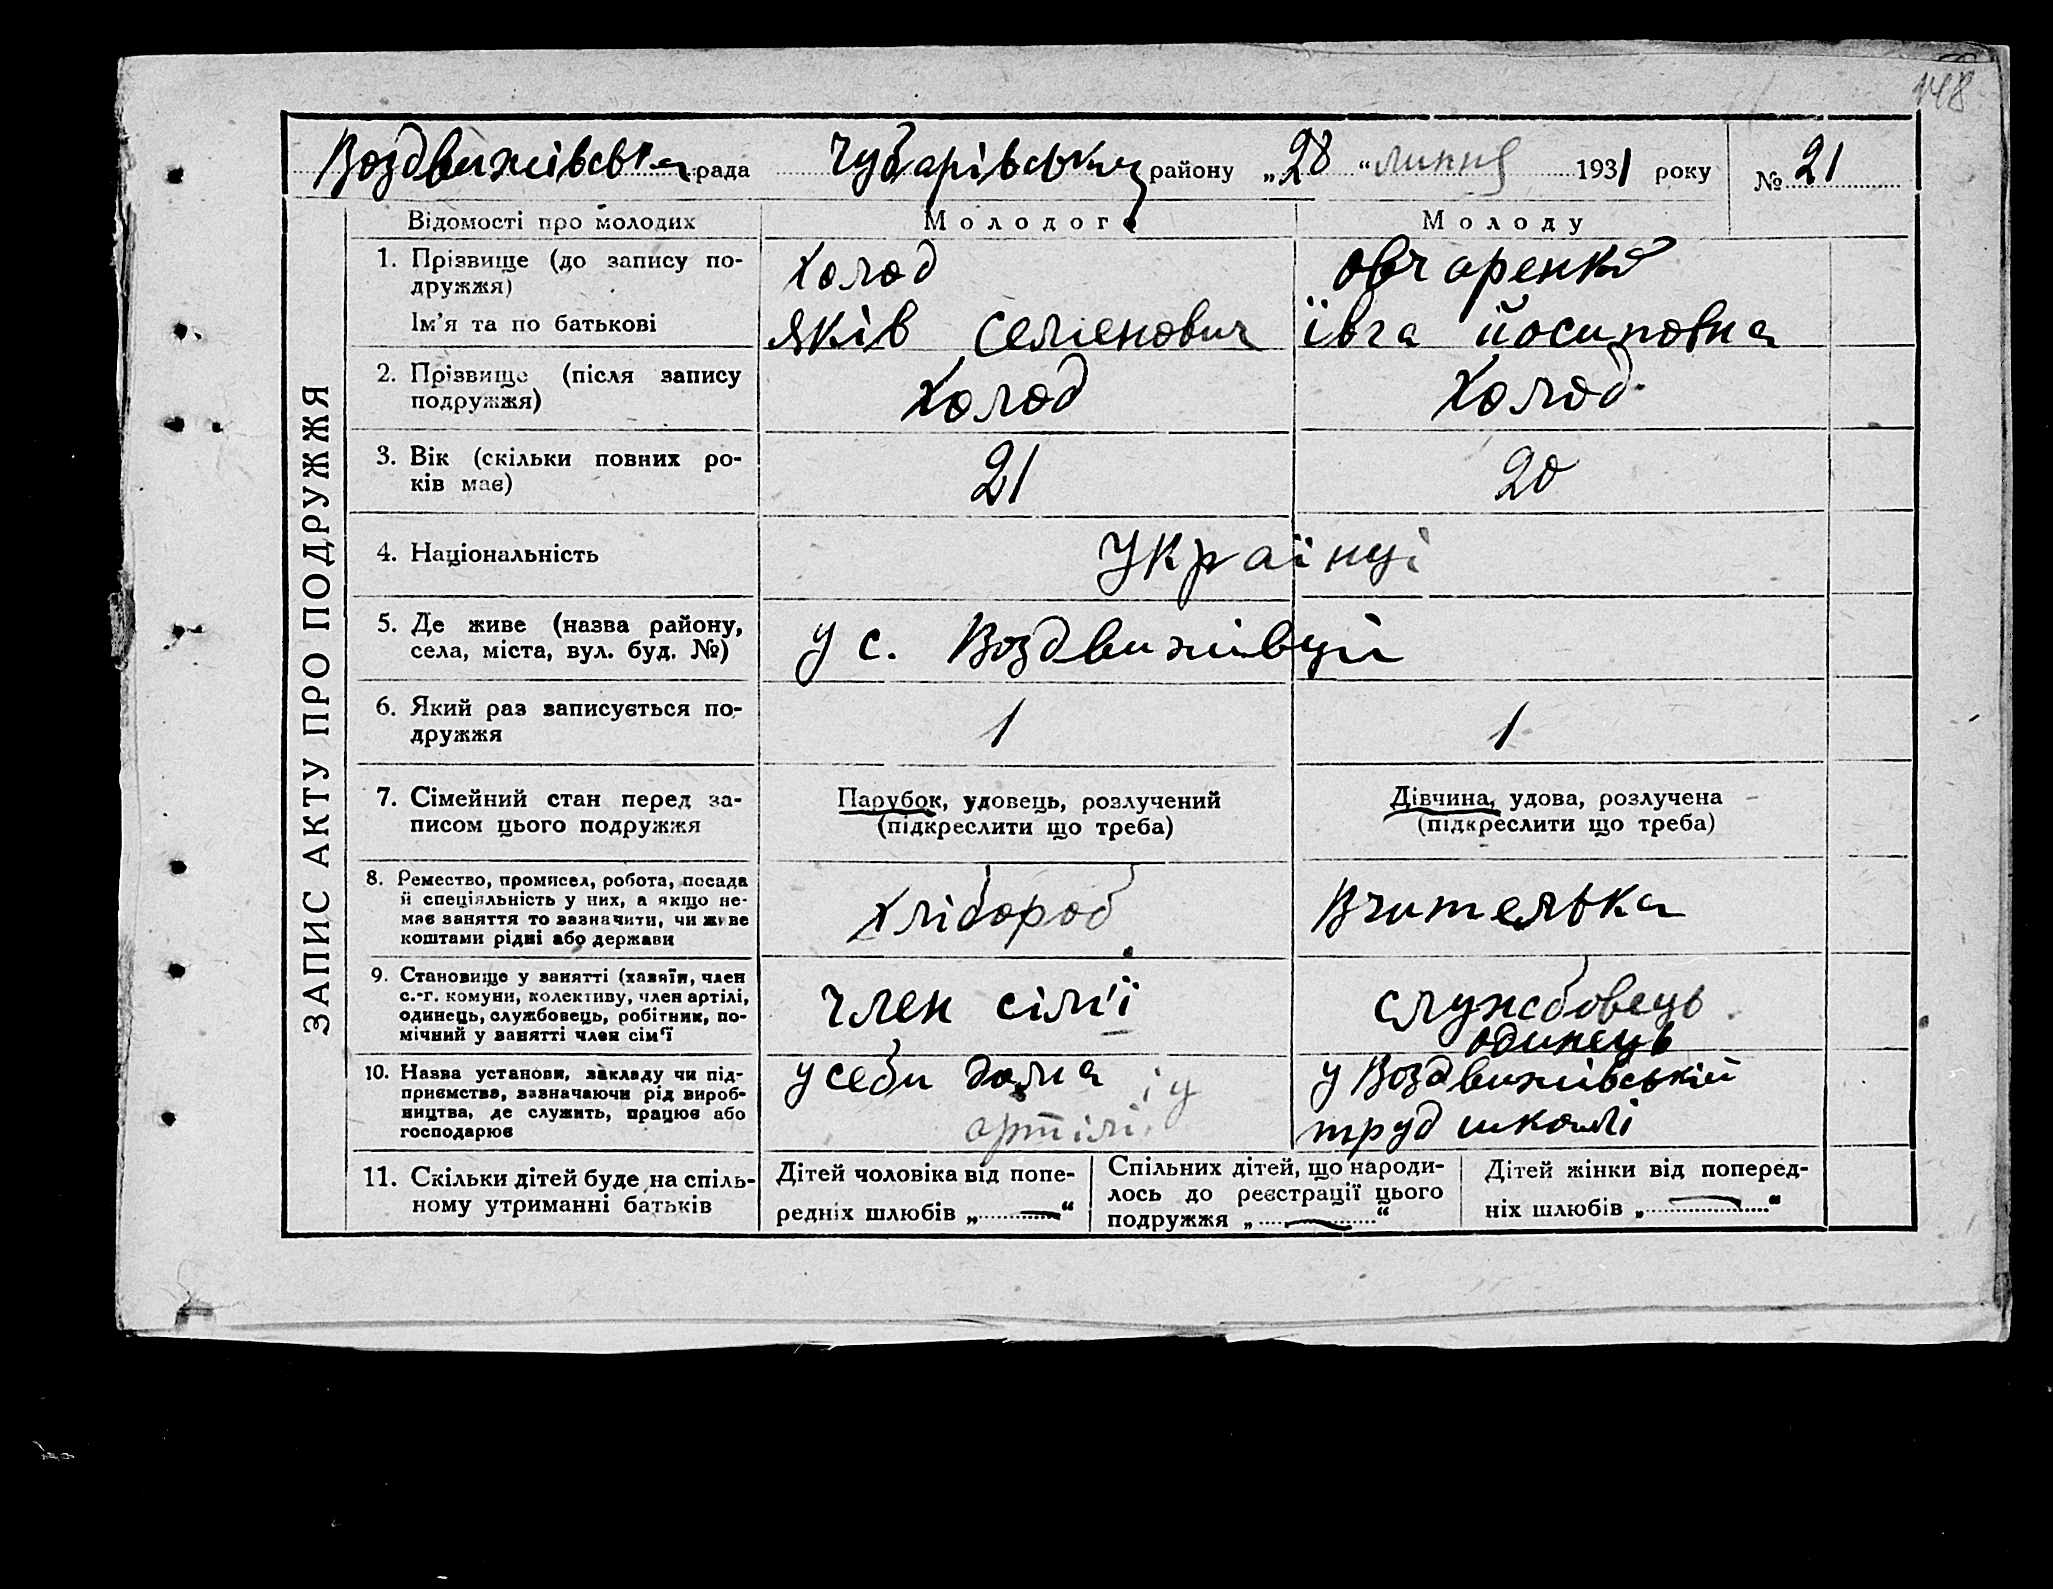 148
Воздвижівська рада Чубарівському району „28“ липня 1931 року № 21
ЗАПИС АКТУ ПРО ПОДРУЖЖЯ
Відомості про молодих Молодого Молоду
1. Прізвище (до запису по-
дружжя)
Холод Овчаренко
Ім’я та по батькові Яків Семенович Ївга Йосиповна
2. Прізвище (після запису
подружжя)
Холод Холод
3. Вік (скільки повних ро-
ків має)
21 20
4. Національність Українці
5. Де живе (назва району,
села, міста, вул. буд. №)
у с. Воздвижівці
6. Який раз записується по-
дружжя
1 1
7. Сімейний стан перед за-
писом цього подружжя
Парубок, удовець, розлучений
(підкреслити що треба)
Дівчина, удова, розлучена
(підкреслити що треба)
8. Ремество, промисел, робота, посада
й спеціяльність у них, а якщо не-
має заняття то зазначити, чи живе
коштами рідні або держави
Хлібороб Вчителька
9. Становище у занятті (хазяїн, член
с.-г. комуни, колективу, член артілі,
одинець, службовець, робітник, по-
мічний у занятті член сім’ї
член сім'ї службовець
одинець
10. Назва установи, закладу чи під-
приємства, зазначаючи рід вироб-
ництва, де служить, працює або
господарює
у себи дома і у
артілі
у Воздвижівській
труд школі
11. Скільки дітей буде на спіль-
ному утриманні батьків
Дітей чоловіка від попе-
редніх шлюбів „—“
Спільних дітей, що народи-
лось до реєстрації цього
подружжя „—“
Дітей жінки від поперед-
ніх шлюбів „—“